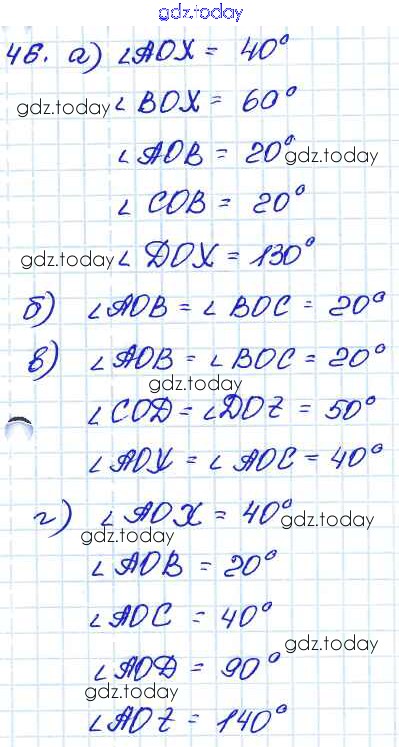 gdz.today
46. а) ∠AOX = 40°
gdz.today ∠BOX = 60°
∠AOB = 20° gdz.today
∠COB = 20°
gdz.today ∠DOX = 130°
б) ∠AOB = ∠BOC = 20°
в) ∠AOB = ∠BOC = 20°
gdz.today
∠COD = ∠DOZ = 50°
∠AOX = ∠AOC = 40°
г) ∠AOX = 40° gdz.today
gdz.today
∠AOB = 20°
∠AOC = 40°
gdz.today
∠AOD = 90°
gdz.today
∠AOZ = 140°